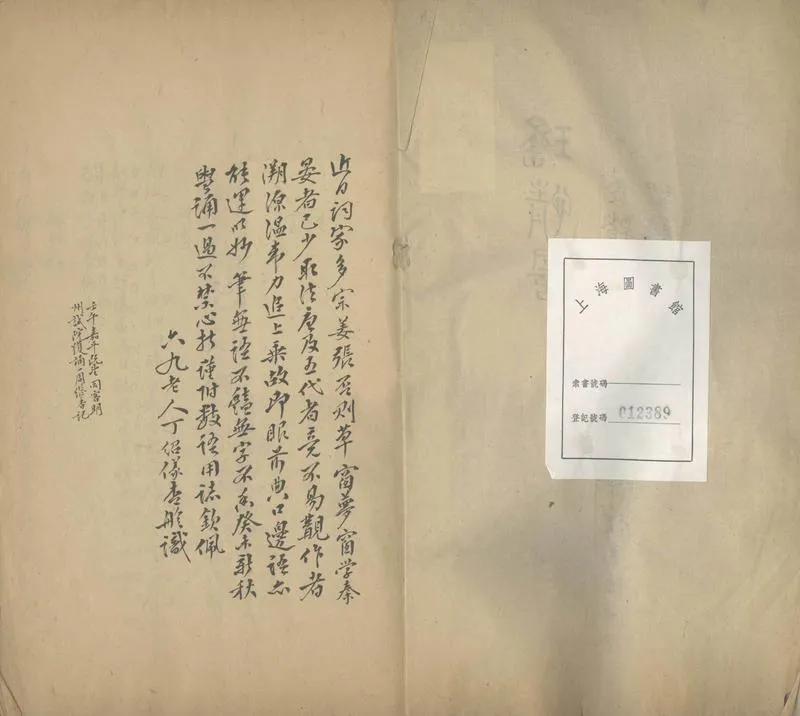 上海圖書館
索書號碼
登記號碼 012389
近日詞家多宗姜張否則草窗夢窗学秦
晏者已少取法唐及五代者竟不易覯作者
溯源温韋力追上乘故即眼前典口邊語亦
能運以妙筆無語不馨無字不香癸未新秋
謹誦一過不禁心折謹附數語用誌欽佩
六九老人丁紹儀杏舲識
壬午嘉平
州試院讀誦一周